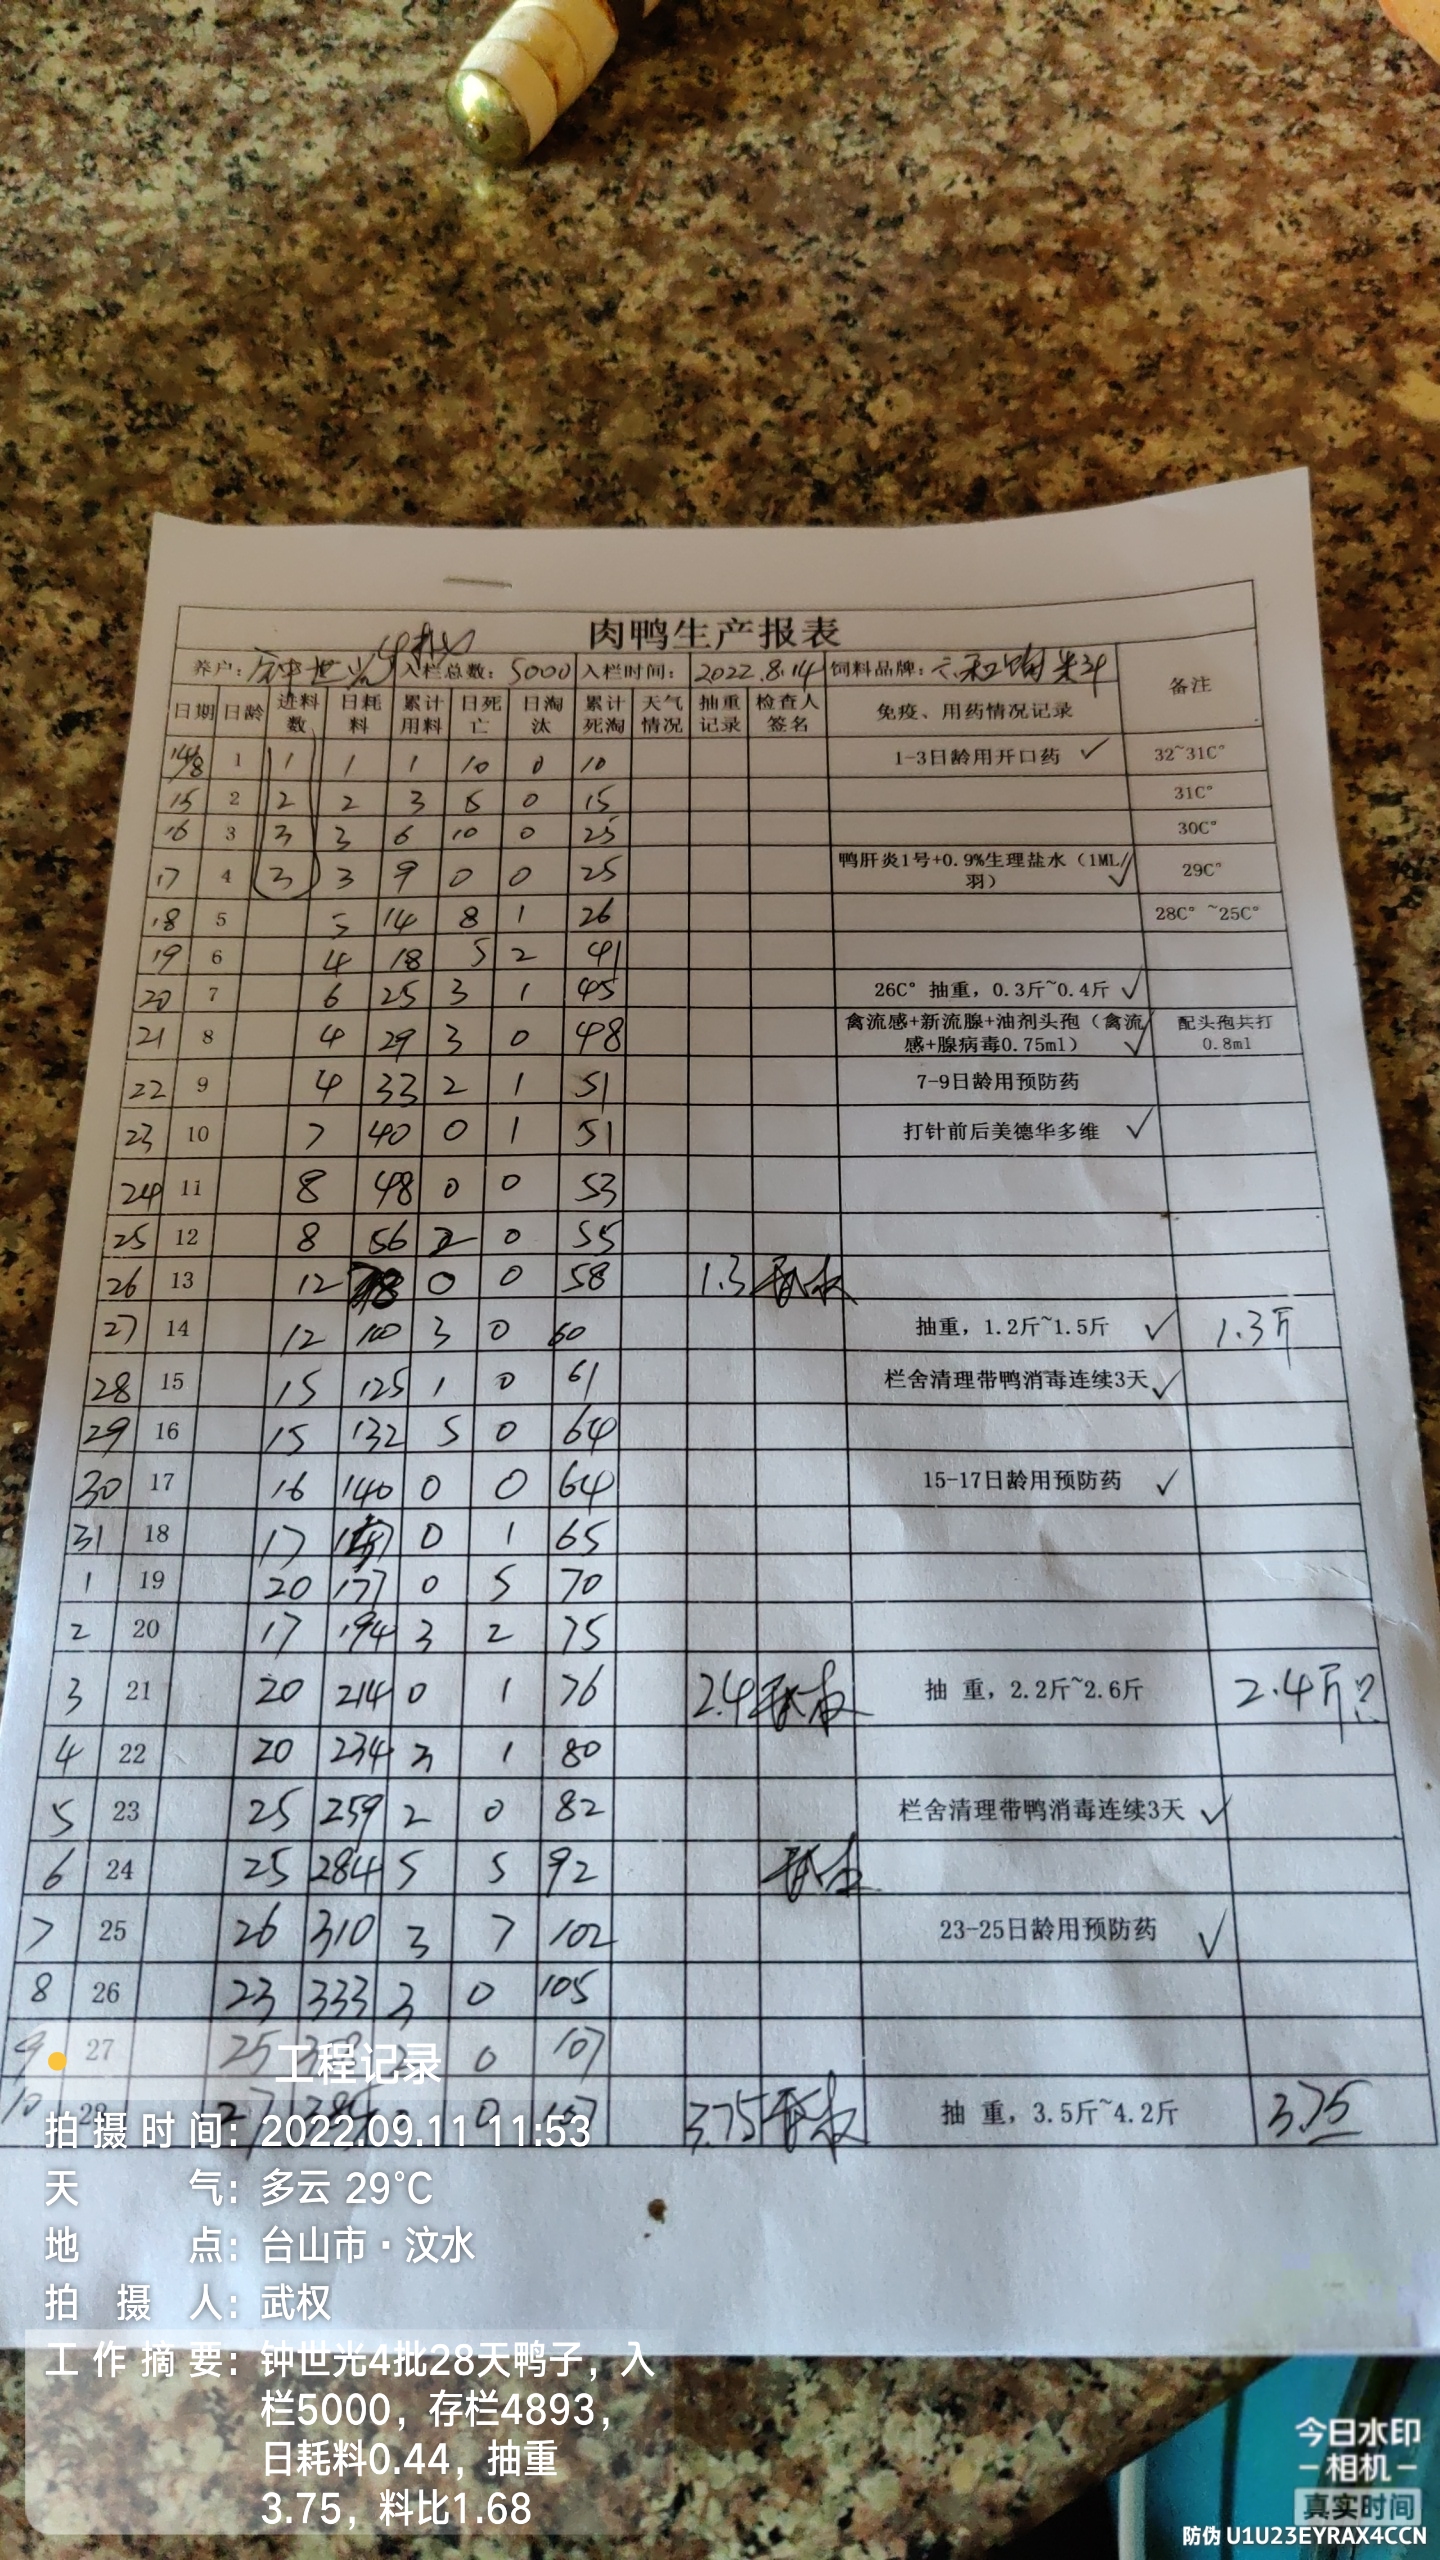 肉鸭生产报表
养户：钟世光 4批 入栏总数：5000 入栏时间：2022.8.14 饲料品牌：六和
日期 日龄 进料数 日耗料 累计用料 日死亡 日淘汰 累计死淘 天气情况 抽重记录 检查人签名 免疫、用药情况记录 备注
14/8 1 1 1 1 10 0 10 1-3日龄用开口药 ✓ 32~31C°
15 2 2 2 3 5 0 15 31C°
16 3 3 3 6 10 0 25 30C°
17 4 3 3 9 0 0 25 鸭肝炎1号+0.9%生理盐水（1ML/羽） ✓ 29C°
18 5 5 14 8 1 26 28C° ~25C°
19 6 4 18 5 2 41
20 7 6 25 3 1 45 26C° 抽重，0.3斤~0.4斤 ✓
21 8 4 29 3 0 48 禽流感+新流腺+油剂头孢（禽流感+腺病毒0.75ml） ✓ 配头孢共打0.8ml
22 9 4 33 2 1 51 7-9日龄用预防药
23 10 7 40 0 1 51 打针前后美德华多维 ✓
24 11 8 48 0 0 53
25 12 8 56 2 0 55
26 13 12 0 0 58 1.3 武权
27 14 12 100 3 0 60 抽重，1.2斤~1.5斤 ✓ 1.3斤
28 15 15 125 1 0 61 栏舍清理带鸭消毒连续3天 ✓
29 16 15 132 5 0 64
30 17 16 140 0 0 64 15-17日龄用预防药 ✓
31 18 17 0 1 65
1 19 20 177 0 5 70
2 20 17 194 3 2 75
3 21 20 214 0 1 76 2.4 武权 抽 重，2.2斤~2.6斤 2.4斤
4 22 20 234 3 1 80
5 23 25 259 2 0 82 栏舍清理带鸭消毒连续3天 ✓
6 24 25 284 5 5 92 武权
7 25 26 310 3 7 102 23-25日龄用预防药 ✓
8 26 23 333 3 0 105
9 27 25 0 107
10 28 27 0 107 3.75 武权 抽 重，3.5斤~4.2斤 3.75
工程记录
拍摄时间：2022.09.11 11:53
天气：多云 29℃
地点：台山市·汶水
拍摄人：武权
工作摘要：钟世光4批28天鸭子，入
栏5000，存栏4893，
日耗料0.44，抽重
3.75，料比1.68
今日水印
相机
真实时间
防伪 U1U23EYRAX4CCN